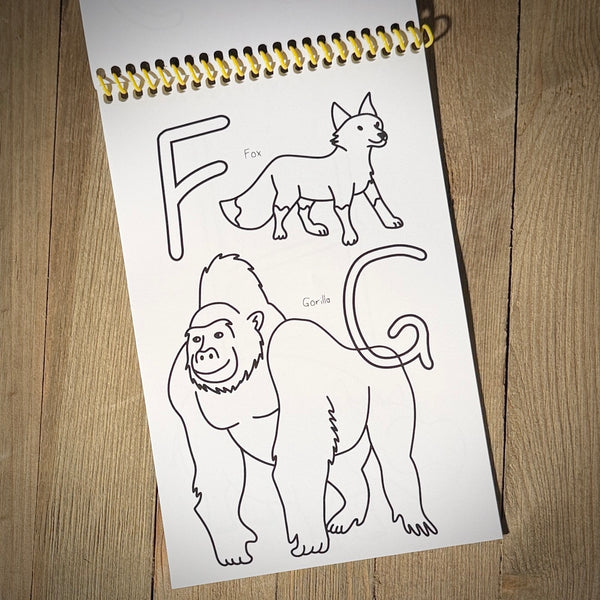 F
Fox
Gorilla
G